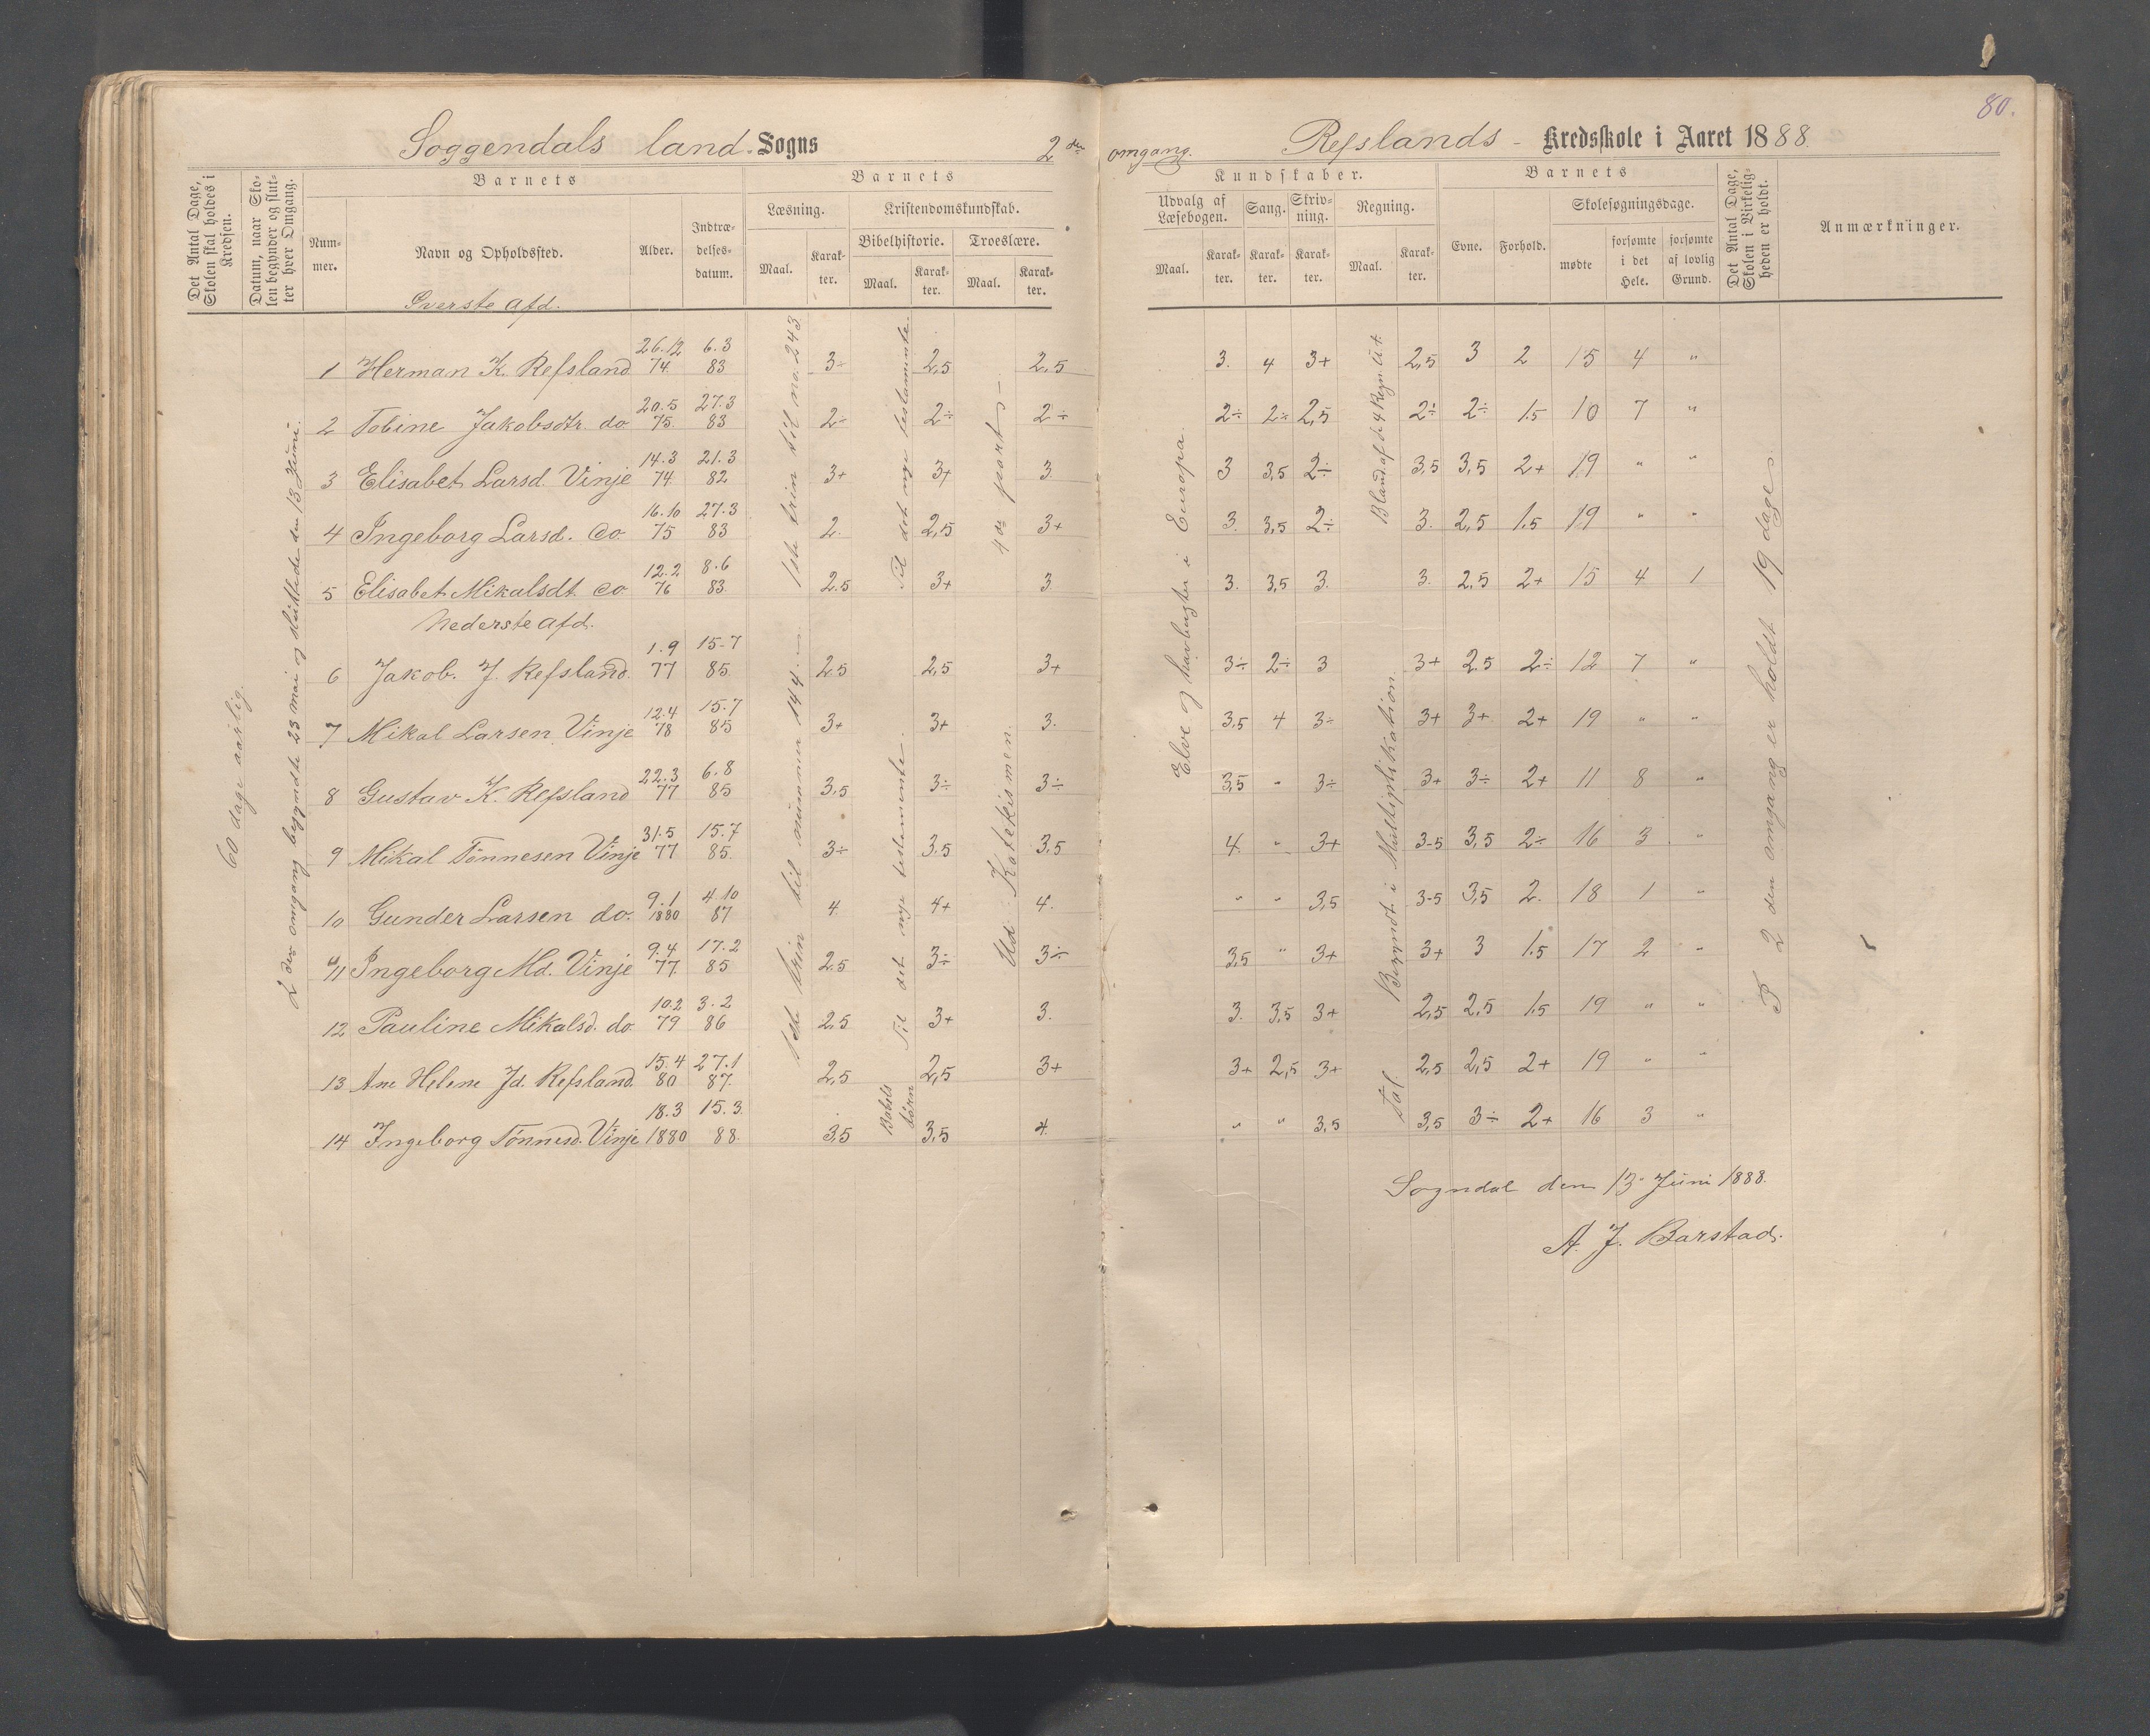 80.
Soggendals land-Sogns 2den omgang. Refslands - Kredsskole i Aaret 1888.
Det Antal Dage, Skolen skal holdes i Kredsen.
Datum, naar Skolen begynder og slutter hver Omgang.
Barnets
Nummer.
Navn og Opholdssted.
Alder.
Indtrædelsesdatum.
Barnets
Læsning.
Maal.
Karakter.
Kristendomskundskab.
Bibelhistorie.
Maal.
Karakter.
Troeslære.
Maal.
Karakter.
Kundskaber.
Udvalg af Læsebogen.
Maal.
Karakter.
Sang.
Karakter.
Skrivning.
Karakter.
Regning.
Maal.
Karakter.
Barnets
Evne.
Forhold.
Skolesøgningsdage.
mødte
forsømte i det Hele.
forsømte af lovlig Grund.
Det Antal Dage, Skolen i Virkeligheden er holdt.
Anmærkninger.
60 dage aarlig.
2den omgang begyndte 23 mai og sluttede den 13 Juni.
1ste trin til no. 243.
Til det nye testamente.
4de part
Elve og havbugter i Europa.
Øverste afd.
1 Herman K. Refsland 26.12 74. 6.3 83 3÷ 2,5 2,5 3. 4 3+ 2,5 3 2 15 4 "
2 Tobine Jakobsdtr do 20.5 75. 27.3 83 2÷ 2÷ 2÷ 2÷ 2÷ 2,5 2÷ 2÷ 1.5 10 7 "
3 Elisabet Larsd. Vinje 14.3 74. 21.3 82 3+ 3+ 3. 3 3,5 2÷ 3,5 3,5 2+ 19 " "
4 Ingeborg Larsd. do 16.10 75 27.3 83 2. 2,5 3+ 3. 3,5 2÷ 3. 2,5 1.5 19 " "
5 Elisabet Mikalsdt. do 12.2 76 8.6 83. 2.5 3+ 3. 3. 3,5 3. 3. 2,5 2+ 15 4 1
Nederste afd.
6 Jakob. J. Refsland. 1.9 77 15.7 85. 2.5 2,5 3+ 3÷ 2÷ 3 3+ 2.5 2÷ 12 7 "
7 Mikal Larsen Vinje 12.4 78 15.7 85 3+ 3+ 3. 3,5 4 3÷ 3+ 3+ 2+ 19 " "
8 Gustav K. Refsland 22.3 77 6.8 85 3,5 3÷ 3÷ 3,5 " 3÷ 3+ 3÷ 2+ 11 8 "
9 Mikal Tønnesen Vinje 31.5 77 15.7 85. 3÷ 3.5 3,5 4. " 3+ 3-5 3,5 2÷ 16 3 "
10 Gunder Larsen do. 9.1 1880 4.10 87 4 4+ 4. " " 3,5 3-5 3,5 2. 18 1 "
11 Ingeborg Md. Vinje 9.4 77. 17.2 85 2.5 3÷ 3÷ 3,5 " 3+ 3+ 3 1.5 17 2 "
12 Pauline Mikalsd. do 10.2 79 3.2 86 2,5 3+ 3. 3. 3,5 3+ 2,5 2,5 1.5 19 " "
13 Ane Helene Jd. Refsland. 15.4 80 27.1 87. 2,5 2,5 3+ 3+ 2,5 3+ 2,5 2,5 2+ 19 " "
14 Ingeborg Tønnesd. Vinje 18.3 1880 15.3. 88. 3,5 3,5 4. " " 3.5 3,5 3÷ 2+ 16 3 "
1ste trin til nummer 144.
Til det nye testamente.
Babels tårn
Ud Katekismen.
Bland. af de 4 Regn.
Begyndt i Multiplikation.
Tal.
2den omgang er holdt 19 dage
Sogndal den 13 Juni 1888.
A. J. Barstad.